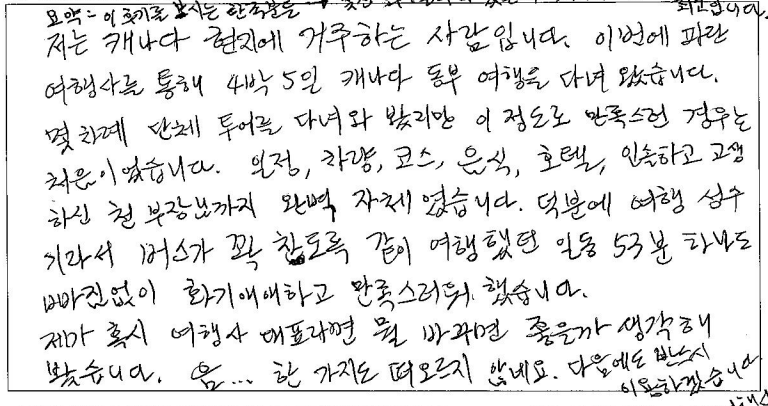 요약 - 이 후기를 보시는 한국분들
최고입니다.
저는 캐나다 현지에 거주하는 사람입니다. 이번에 파란
여행사를 통해 4박 5일 캐나다 동부 여행을 다녀 왔습니다.
몇 차례 단체 투어를 다녀와 봤지만 이 정도로 만족스런 경우는
처음이었습니다. 일정, 차량, 코스, 음식, 호텔, 인솔하고 고생
하신 천 부장님까지 완벽 자체였습니다. 덕분에 여행 성수
기라서 버스가 꽉 찼도록 같이 여행했던 일동 53분 하나도
빠짐없이 화기애애하고 만족스러워 했습니다.
제가 혹시 여행사 대표라면 뭘 바꾸면 좋을까 생각해
봤습니다. 음... 한 가지도 떠오르지 않네요. 다음에도 반드시
이용하겠습니다